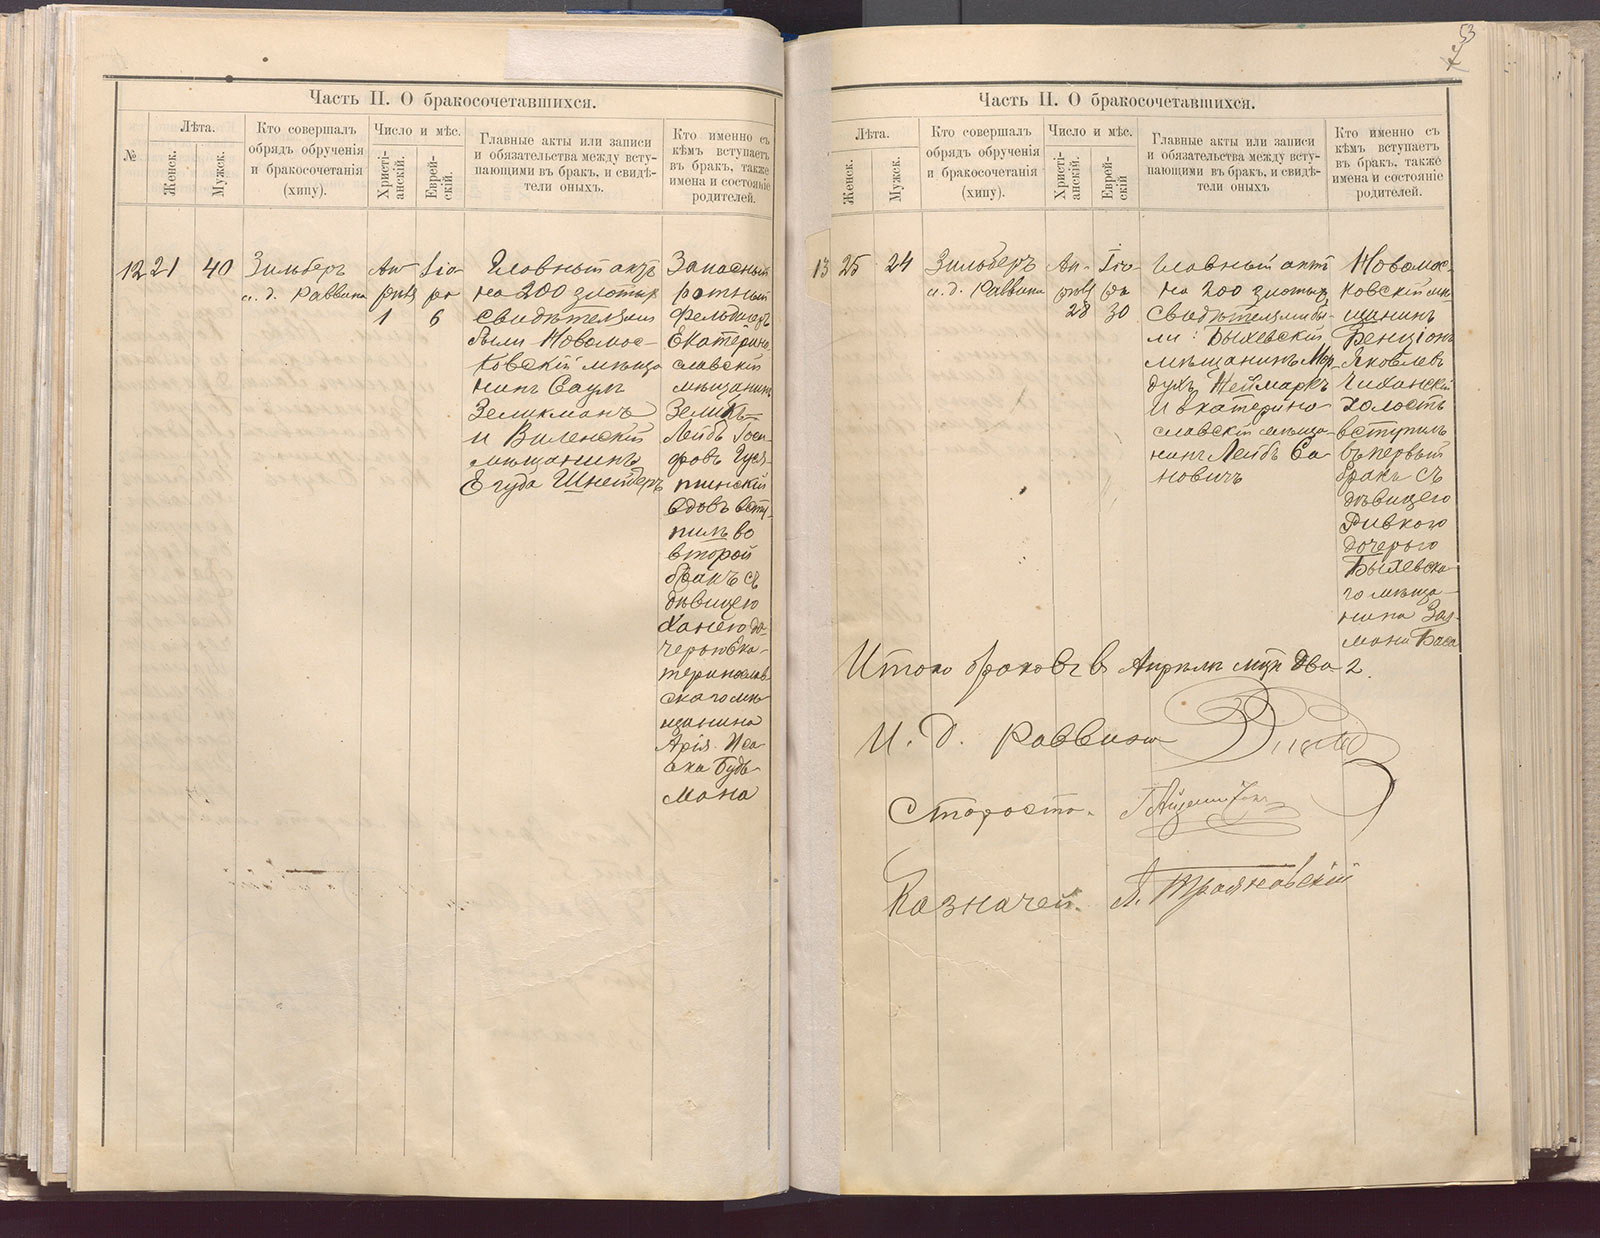 Часть II. О бракосочетавшихся.
№
Лѣта.
Женск.
Мужск.
Кто совершалъ
обрядъ обрученія
и бракосочетанія
(хипу).
Число и мѣс.
Христі-
анскій.
Еврей-
скій.
Главные акты или записи
и обязательства между всту-
пающими въ бракъ, и свидѣ-
тели оныхъ.
Кто именно съ
кѣмъ вступаетъ
въ бракъ, также
имена и состояніе
родителей.
12
21
40
Зильберъ
и. д. Раввина
Ап-
рѣль
1
6
Главный актъ
на 200 злотых
свидѣтелями
были Новомос-
ковскій мѣща
нинъ Саулъ
Зеликманъ
и Виленскій
мѣщанинъ
Егуда Шнейдеръ
Запасный
ротный
Фельдшеръ
Екатерино
славскій
мѣщанинъ
Зеликъ-
Лейбъ Іоси-
фовъ
вдовъ всту-
пилъ во
второй
бракъ съ
дѣвицею
Ханею до-
черью Ека-
теринослав-
скаго мѣ-
щанина
Арія Иса-
ака Будь-
мана
53
7
Часть II. О бракосочетавшихся.
Лѣта.
Женск.
Мужск.
Кто совершалъ
обрядъ обрученія
и бракосочетанія
(хипу).
Число и мѣс.
Христі-
анскій.
Еврей-
скій
Главные акты или записи
и обязательства между всту-
пающими въ бракъ, и свидѣ-
тели оныхъ
Кто именно съ
кѣмъ вступаетъ
въ бракъ, также
имена и состояніе
родителей.
13
25
24
Зильберъ
и. д. Раввина
Ап-
рѣль
28
30
Главный актъ
на 200 злотых
свидѣтелями бы-
ли: Быхевскій
мѣщанинъ Мор-
духъ Неймаркъ
и Екатерино-
славскій мѣща-
нинъ Лейбъ Са-
новичъ
Новомос-
ковскій мѣ-
щанинъ
Бенціонъ
Яковлевъ
холостъ
вступилъ
въ первый
бракъ съ
дѣвицею
Ривкою
дочерью
Быхевска-
го мѣща-
нина Зал-
мана Баса
Итого браковъ въ Апрѣлѣ мцѣ два 2.
И. Д. Раввина
Староста.
Казначей. Л. Трояновскій